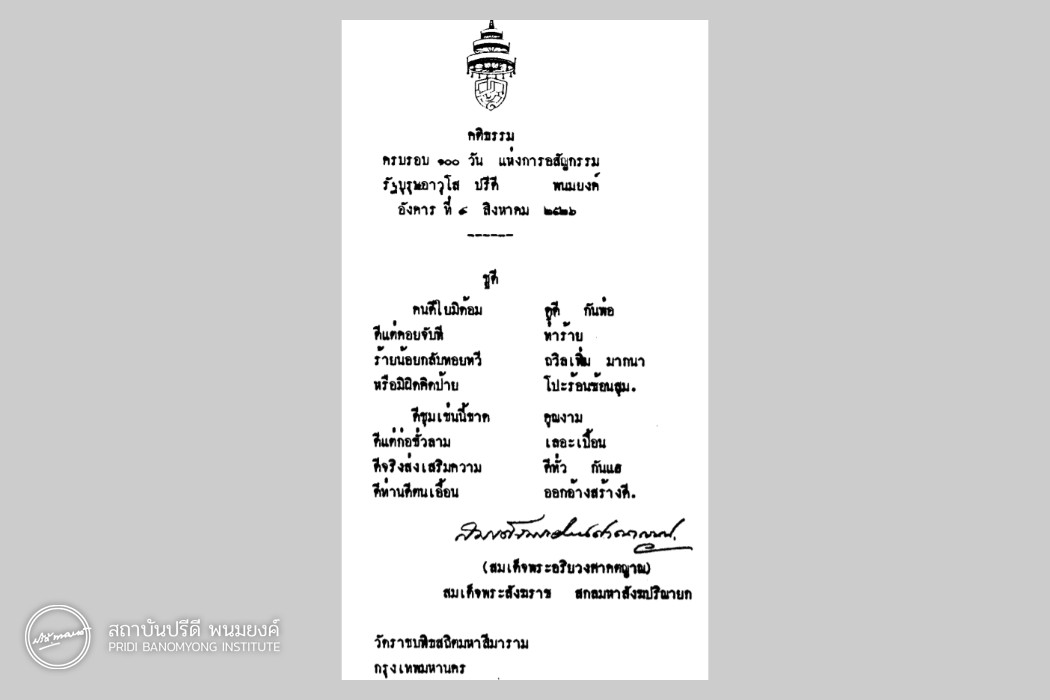 คติธรรม
ครบรอบ ๑๐๐ วัน แห่งการอสัญกรรม
รัฐบุรุษอาวุโส ปรีดี พนมยงค์
อังคาร ที่ ๙ สิงหาคม ๒๕๒๖
------
ชูดี
คนดีไยมิด้อม ดูดี กันพ่อ
ดีแต่คอยจับที ทำร้าย
ร้ายน้อยกลับหอยหวี ถวิลเพิ่ม มากนา
หรือมิผิดคิดป้าย โปะร้อนซ้อนสุม.
ดีชุมเช่นนี้ขาด คุณงาม
ดีแต่ก่อชั่วลาม เลอะเปื้อน
ดีจริงส่งเสริมความ ดีทั่ว กันแฮ
ดีท่านดีตนเอื้อน ออกอ้างสร้างดี.
(สมเด็จพระอริยวงศาคตญาณ)
สมเด็จพระสังฆราช สกลมหาสังฆปริณายก
วัดราชบพิธสถิตมหาสีมาราม
กรุงเทพมหานคร
สถาบันปรีดี พนมยงค์
PRIDI BANOMYONG INSTITUTE